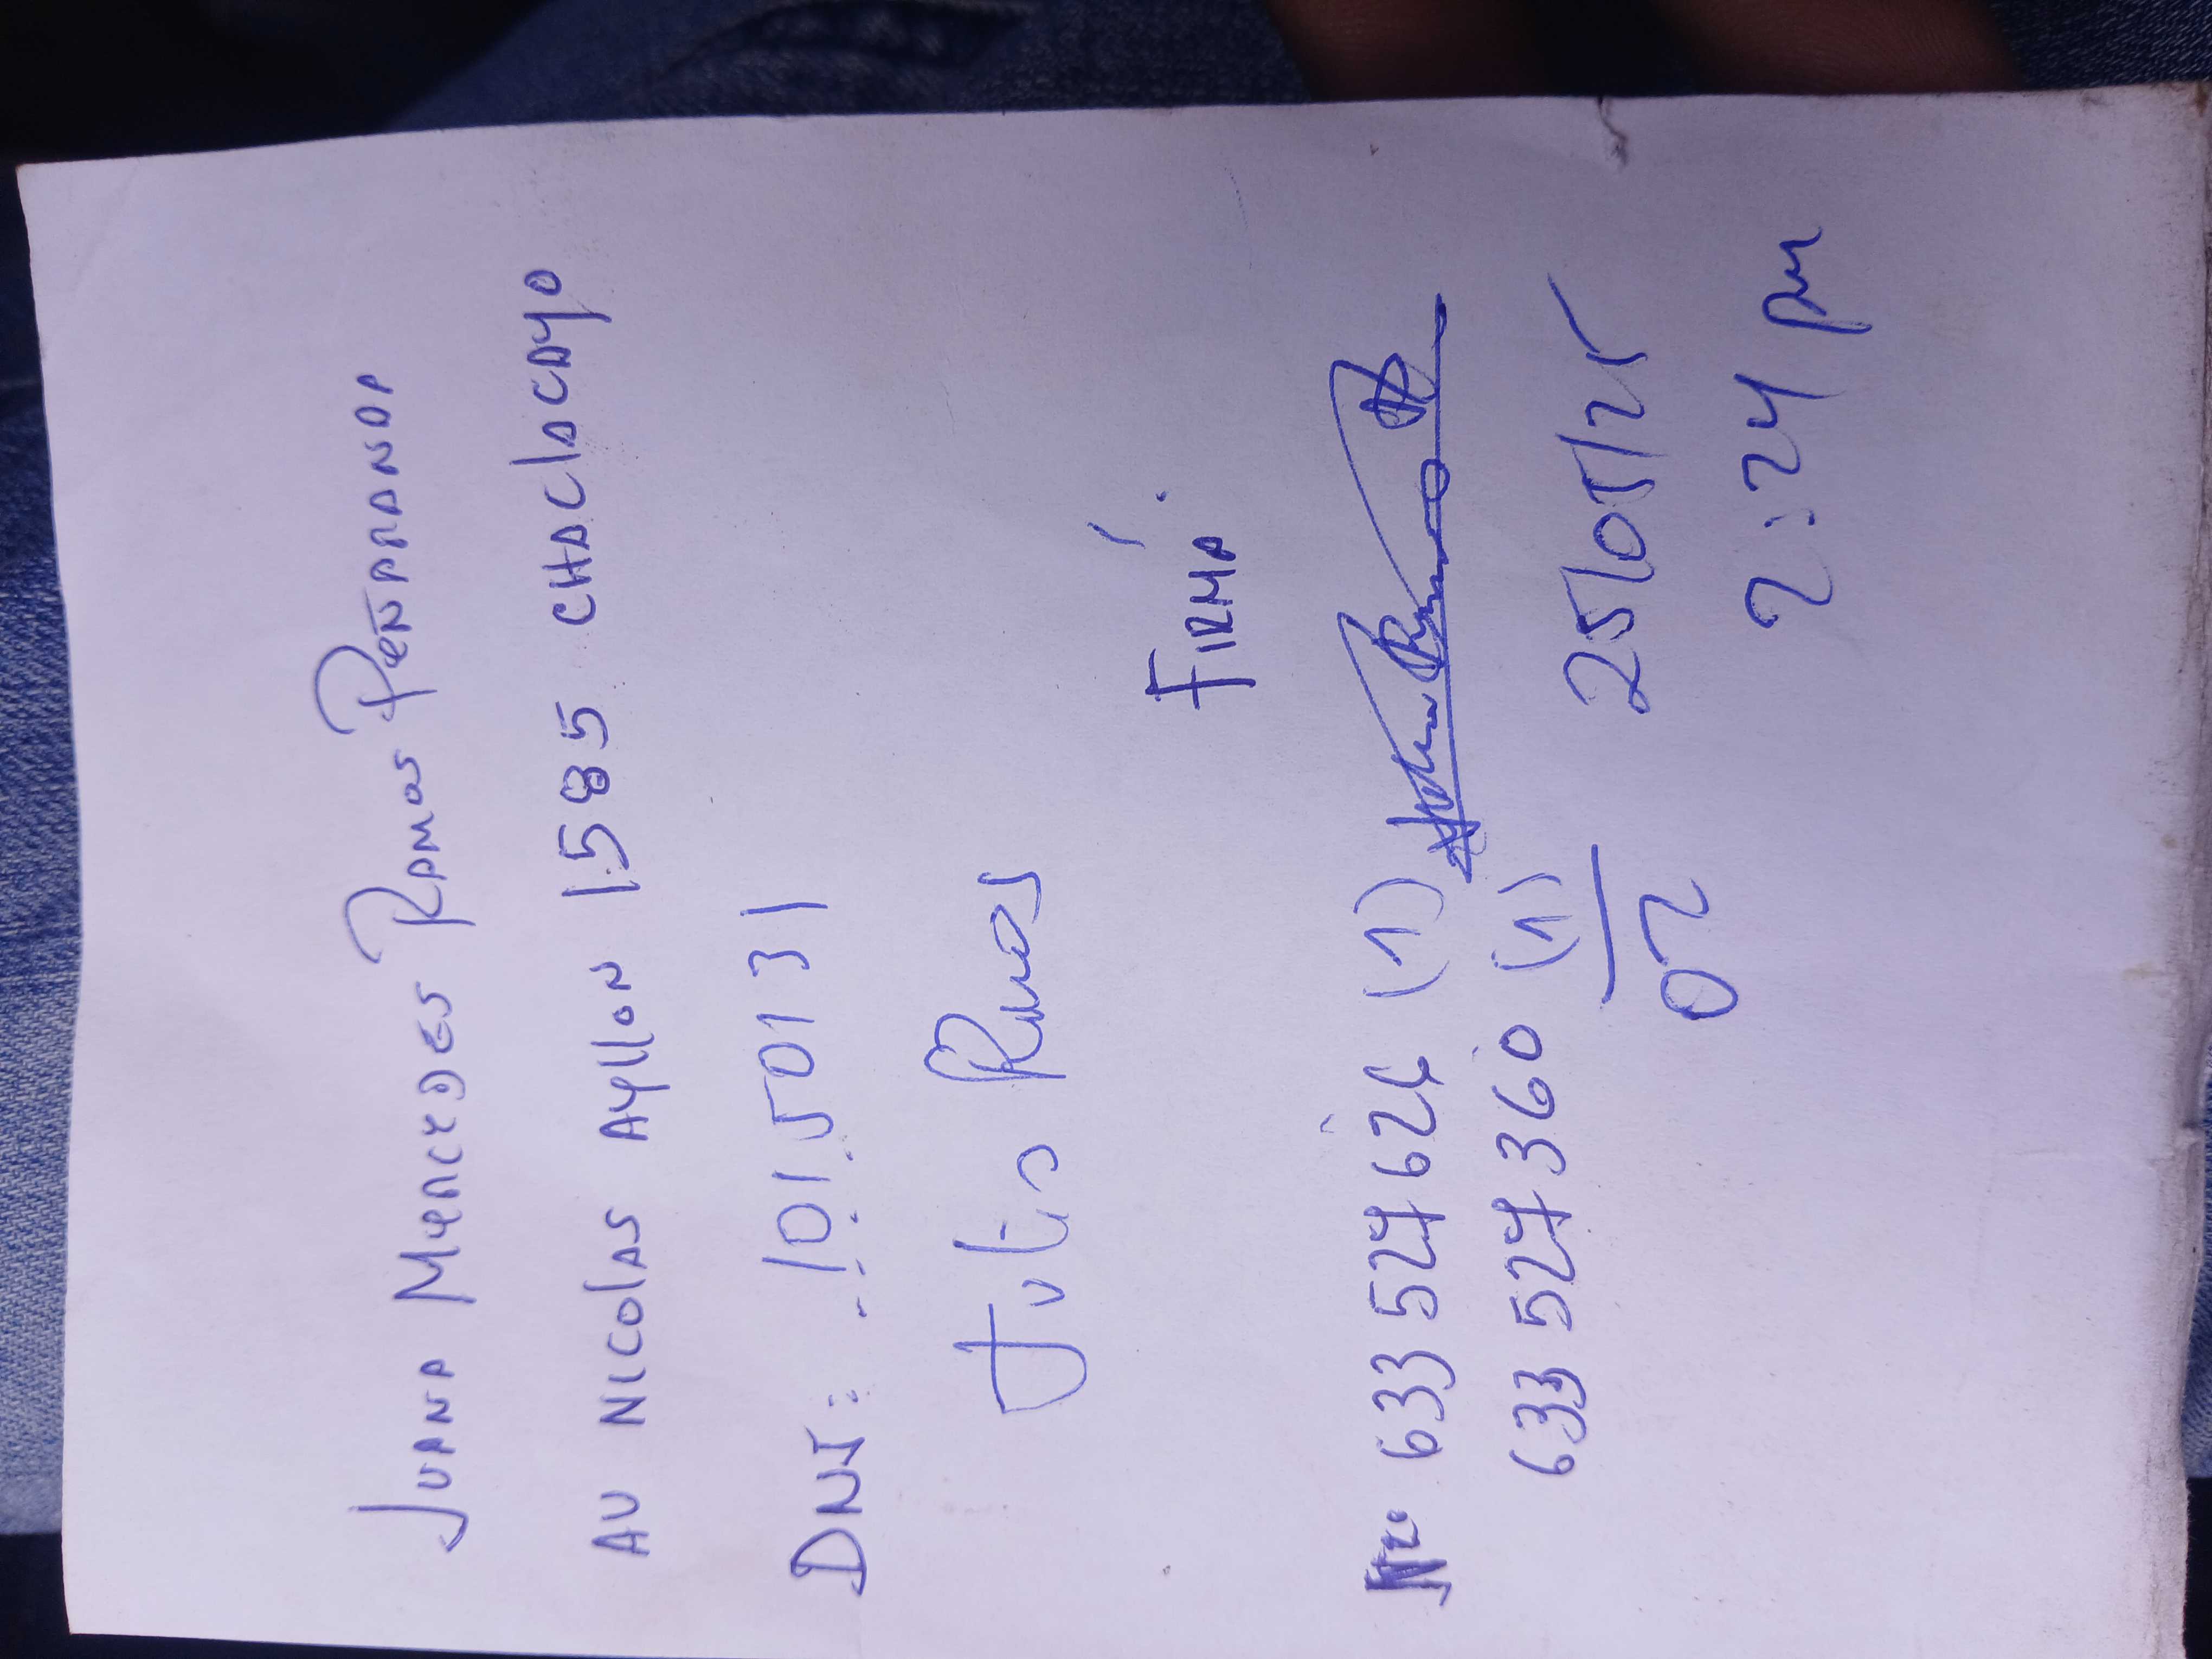 JUANA MERCEDES RAMOS PEÑARANDA
AV NICOLAS AYLLON 1585 CHACLACAYO
DNI: 10150131
Julio Ramos
FIRMA
Nº 633 527 624 (1)
633 527 360 (1)
02
25/05/25
2:24 pm